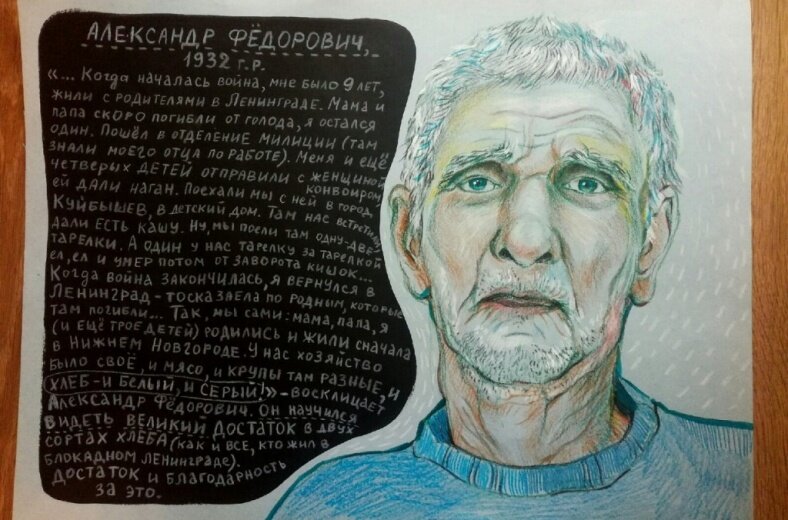 АЛЕКСАНДР ФЁДОРОВИЧ,
1932 г.р.
«... Когда началась война, мне было 9 лет,
жили с родителями в Ленинграде. Мама и
папа скоро погибли от голода, я остался
один. Пошёл в отделение милиции (там
знали моего отца по работе). Меня и ещё
четверых детей отправили с женщиной
конвоиром,
ей дали наган. Поехали мы с ней в город
Куйбышев, в детский дом. Там нас встретили,
дали есть кашу. Ну, мы поели там одну-две
тарелки. А один у нас тарелку за тарелкой
ел, ел и умер потом от заворота кишок...
Когда война закончилась, я вернулся в
Ленинград - тоска заела по родным, которые
там погибли... Так, мы сами: мама, папа, я
(и ещё трое детей) родились и жили сначала
в Нижнем Новгороде. У нас хозяйство
было своё, и мясо, и крупы там разные, и
хлеб - и белый, и серый!» - восклицает
Александр Фёдорович. Он научился
видеть великий достаток в двух
сортах хлеба (как и все, кто жил в
блокадном Ленинграде).
Достаток и благодарность
за это.